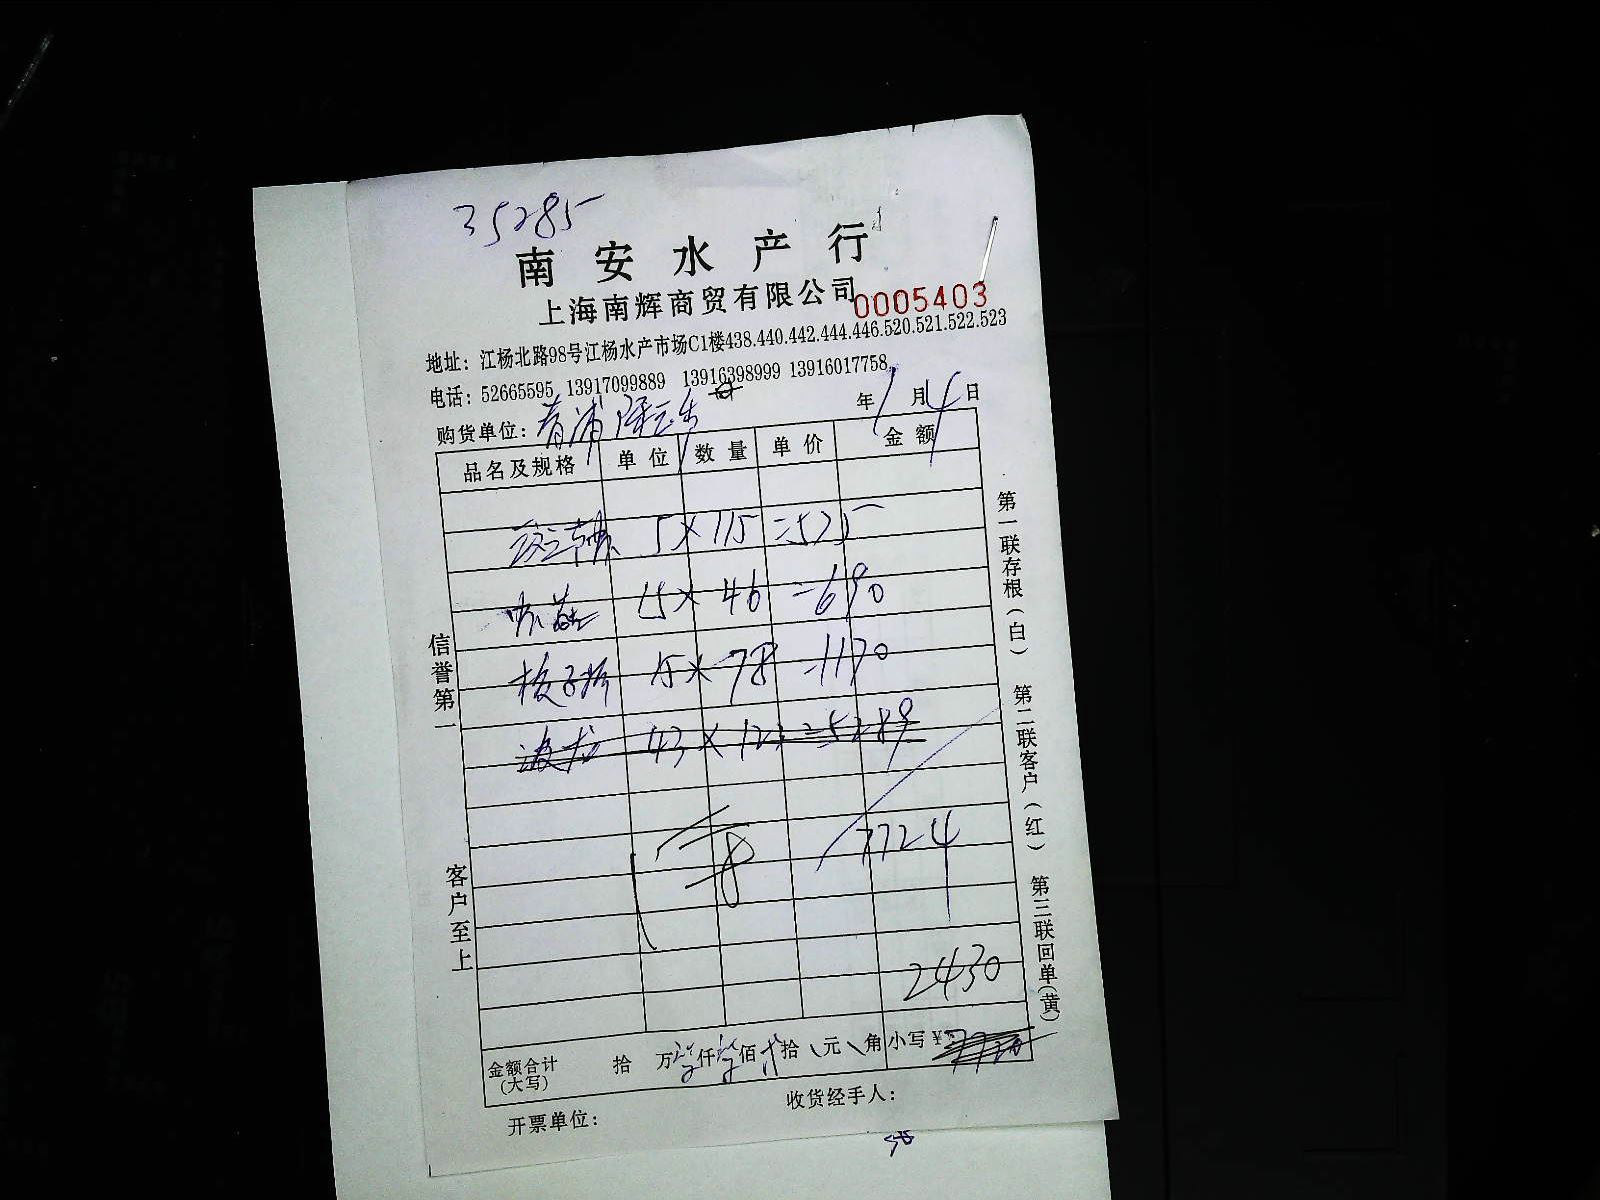 35285
南安水产行
上海南辉商贸有限公司 0005403
地址：江杨北路98号江杨水产市场C1楼438.440.442.444.446.520.521.522.523
电话：52665595 13917099889 13916398999 13916017758
购货单位：青浦 年1月4日
品名及规格 单位 数量 单价 金额
5×115=525
15×46=690
15×78=1170
波龙 43×123=5289
7724
2430
金额合计(大写) 拾 万柒仟柒佰贰拾 元 角 小写￥7720
开票单位： 收货经手人：
信誉第一 客户至上
第一联存根(白) 第二联客户(红) 第三联回单(黄)